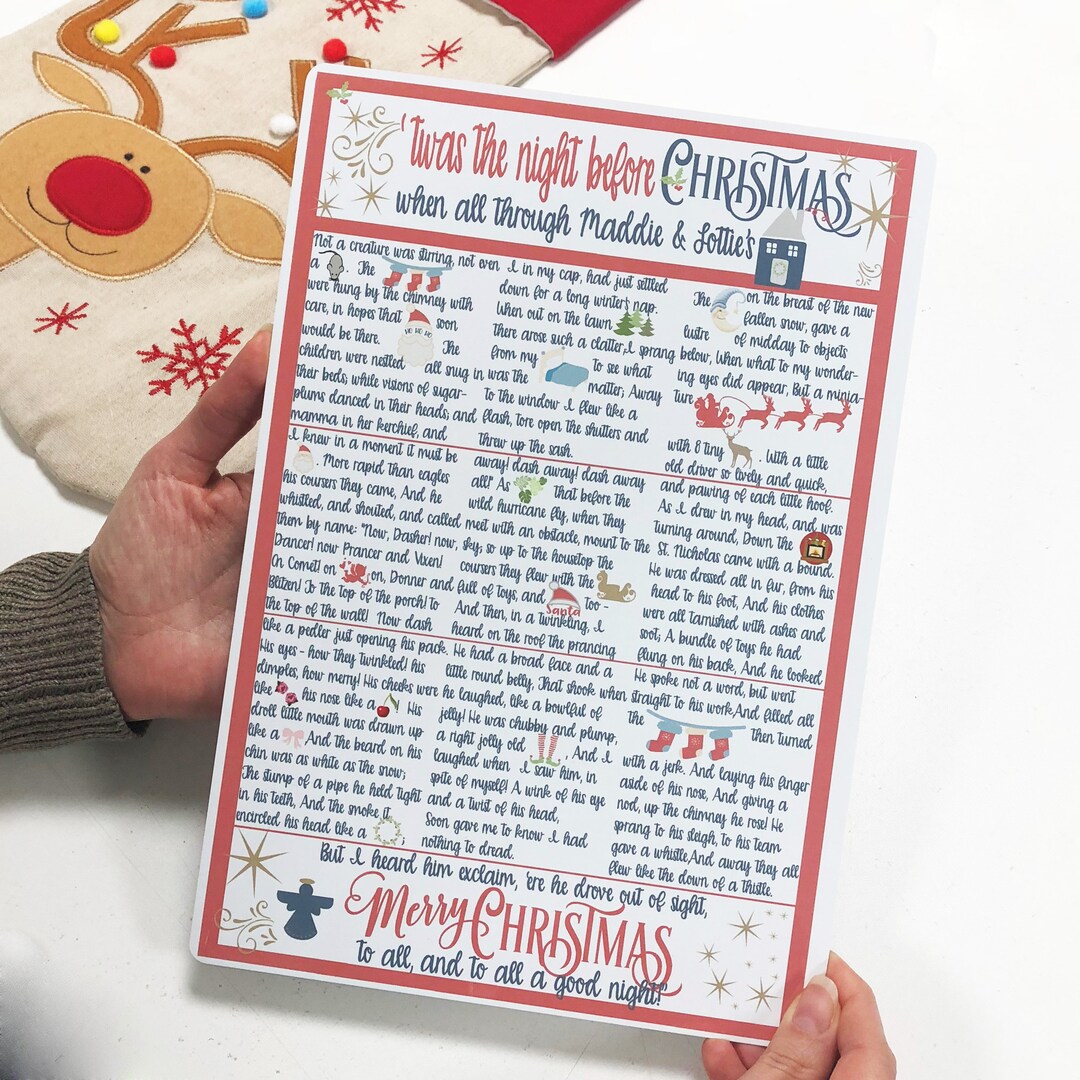 'Twas the night before CHRISTMAS
when all through Maddie & Lottie's
Not a creature was stirring, not even
a . The
were hung by the chimney with
care, in hopes that soon
HO HO HO
would be there. The
children were nestled all snug in
their beds; while visions of sugar-
plums danced in their heads; and
mamma in her kerchief, and
I in my cap, had just settled
down for a long winter's nap.
When out on the lawn
there arose such a clatter, I sprang
from my to see what
was the matter; Away
to the window I flew like a
flash, tore open the shutters and
threw up the sash.
The on the breast of the new
fallen snow, gave a
lustre of midday to objects
below, When what to my wonder-
ing eyes did appear, But a minia-
ture
with 8 tiny . With a little
old driver so lively and quick,
I knew in a moment it must be
. More rapid than eagles
his coursers they came, And he
whistled, and shouted, and called
them by name: "Now, Dasher! now,
Dancer! now Prancer and Vixen!
On Comet! on on, Donner and
Blitzen! To the top of the porch! to
the top of the wall! Now dash
away! dash away! dash away
all!" As that before the
wild hurricane fly, when they
meet with an obstacle, mount to the
sky; so up to the housetop the
coursers they flew with the
full of toys, and Santa too -
And then, in a twinkling, I
heard on the roof the prancing
and pawing of each little hoof.
As I drew in my head, and was
turning around, Down the
St. Nicholas came with a bound.
He was dressed all in fur, from his
head to his foot, And his clothes
were all tarnished with ashes and
soot; A bundle of toys he had
flung on his back, And he looked
like a pedler just opening his pack.
His eyes - how they twinkled! his
dimples, how merry! His cheeks were
like his nose like a His
droll little mouth was drawn up
like a And the beard on his
chin was as white as the snow;
The stump of a pipe he held tight
in his teeth, And the smoke, it
encircled his head like a ;
He had a broad face and a
little round belly, That shook when
he laughed, like a bowlful of
jelly! He was chubby and plump,
a right jolly old , And I
laughed when I saw him, in
spite of myself! A wink of his eye
and a twist of his head,
Soon gave me to know I had
nothing to dread.
He spoke not a word, but went
straight to his work, And filled all
the then turned
with a jerk. And laying his finger
aside of his nose, And giving a
nod, up the chimney he rose! He
sprang to his sleigh, to his team
gave a whistle, And away they all
flew like the down of a thistle.
But I heard him exclaim, 'ere he drove out of sight,
Merry CHRISTMAS
to all, and to all a good night!"